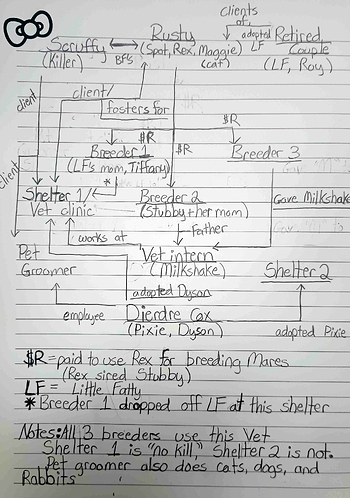 Clients
of
Scruffy Rusty adopted LF Retired
(Killer) BFFs (Spot, Rex, Maggie) Couple
(cat) (LF, Roy)
client/
client fosters for
$R
Breeder 1 $R Breeder 3
(LF's mom, Tiffany)
*
Client
Shelter 1/ Breeder 2 Gave Milkshake
Vet clinic (Stubby + her mom)
Father
works at
Pet Vet intern
Groomer (Milkshake) Shelter 2
adopted Dyson
employee Dierdre Cox
(Pixie, Dyson) adopted Pixie
$R = paid to use Rex for breeding Mares
(Rex sired Stubby)
LF = Little Fatty
* Breeder 1 dropped off LF at this shelter
Notes: All 3 breeders use this Vet
Shelter 1 is "no kill," Shelter 2 is not.
Pet groomer also does cats, dogs, and
Rabbits